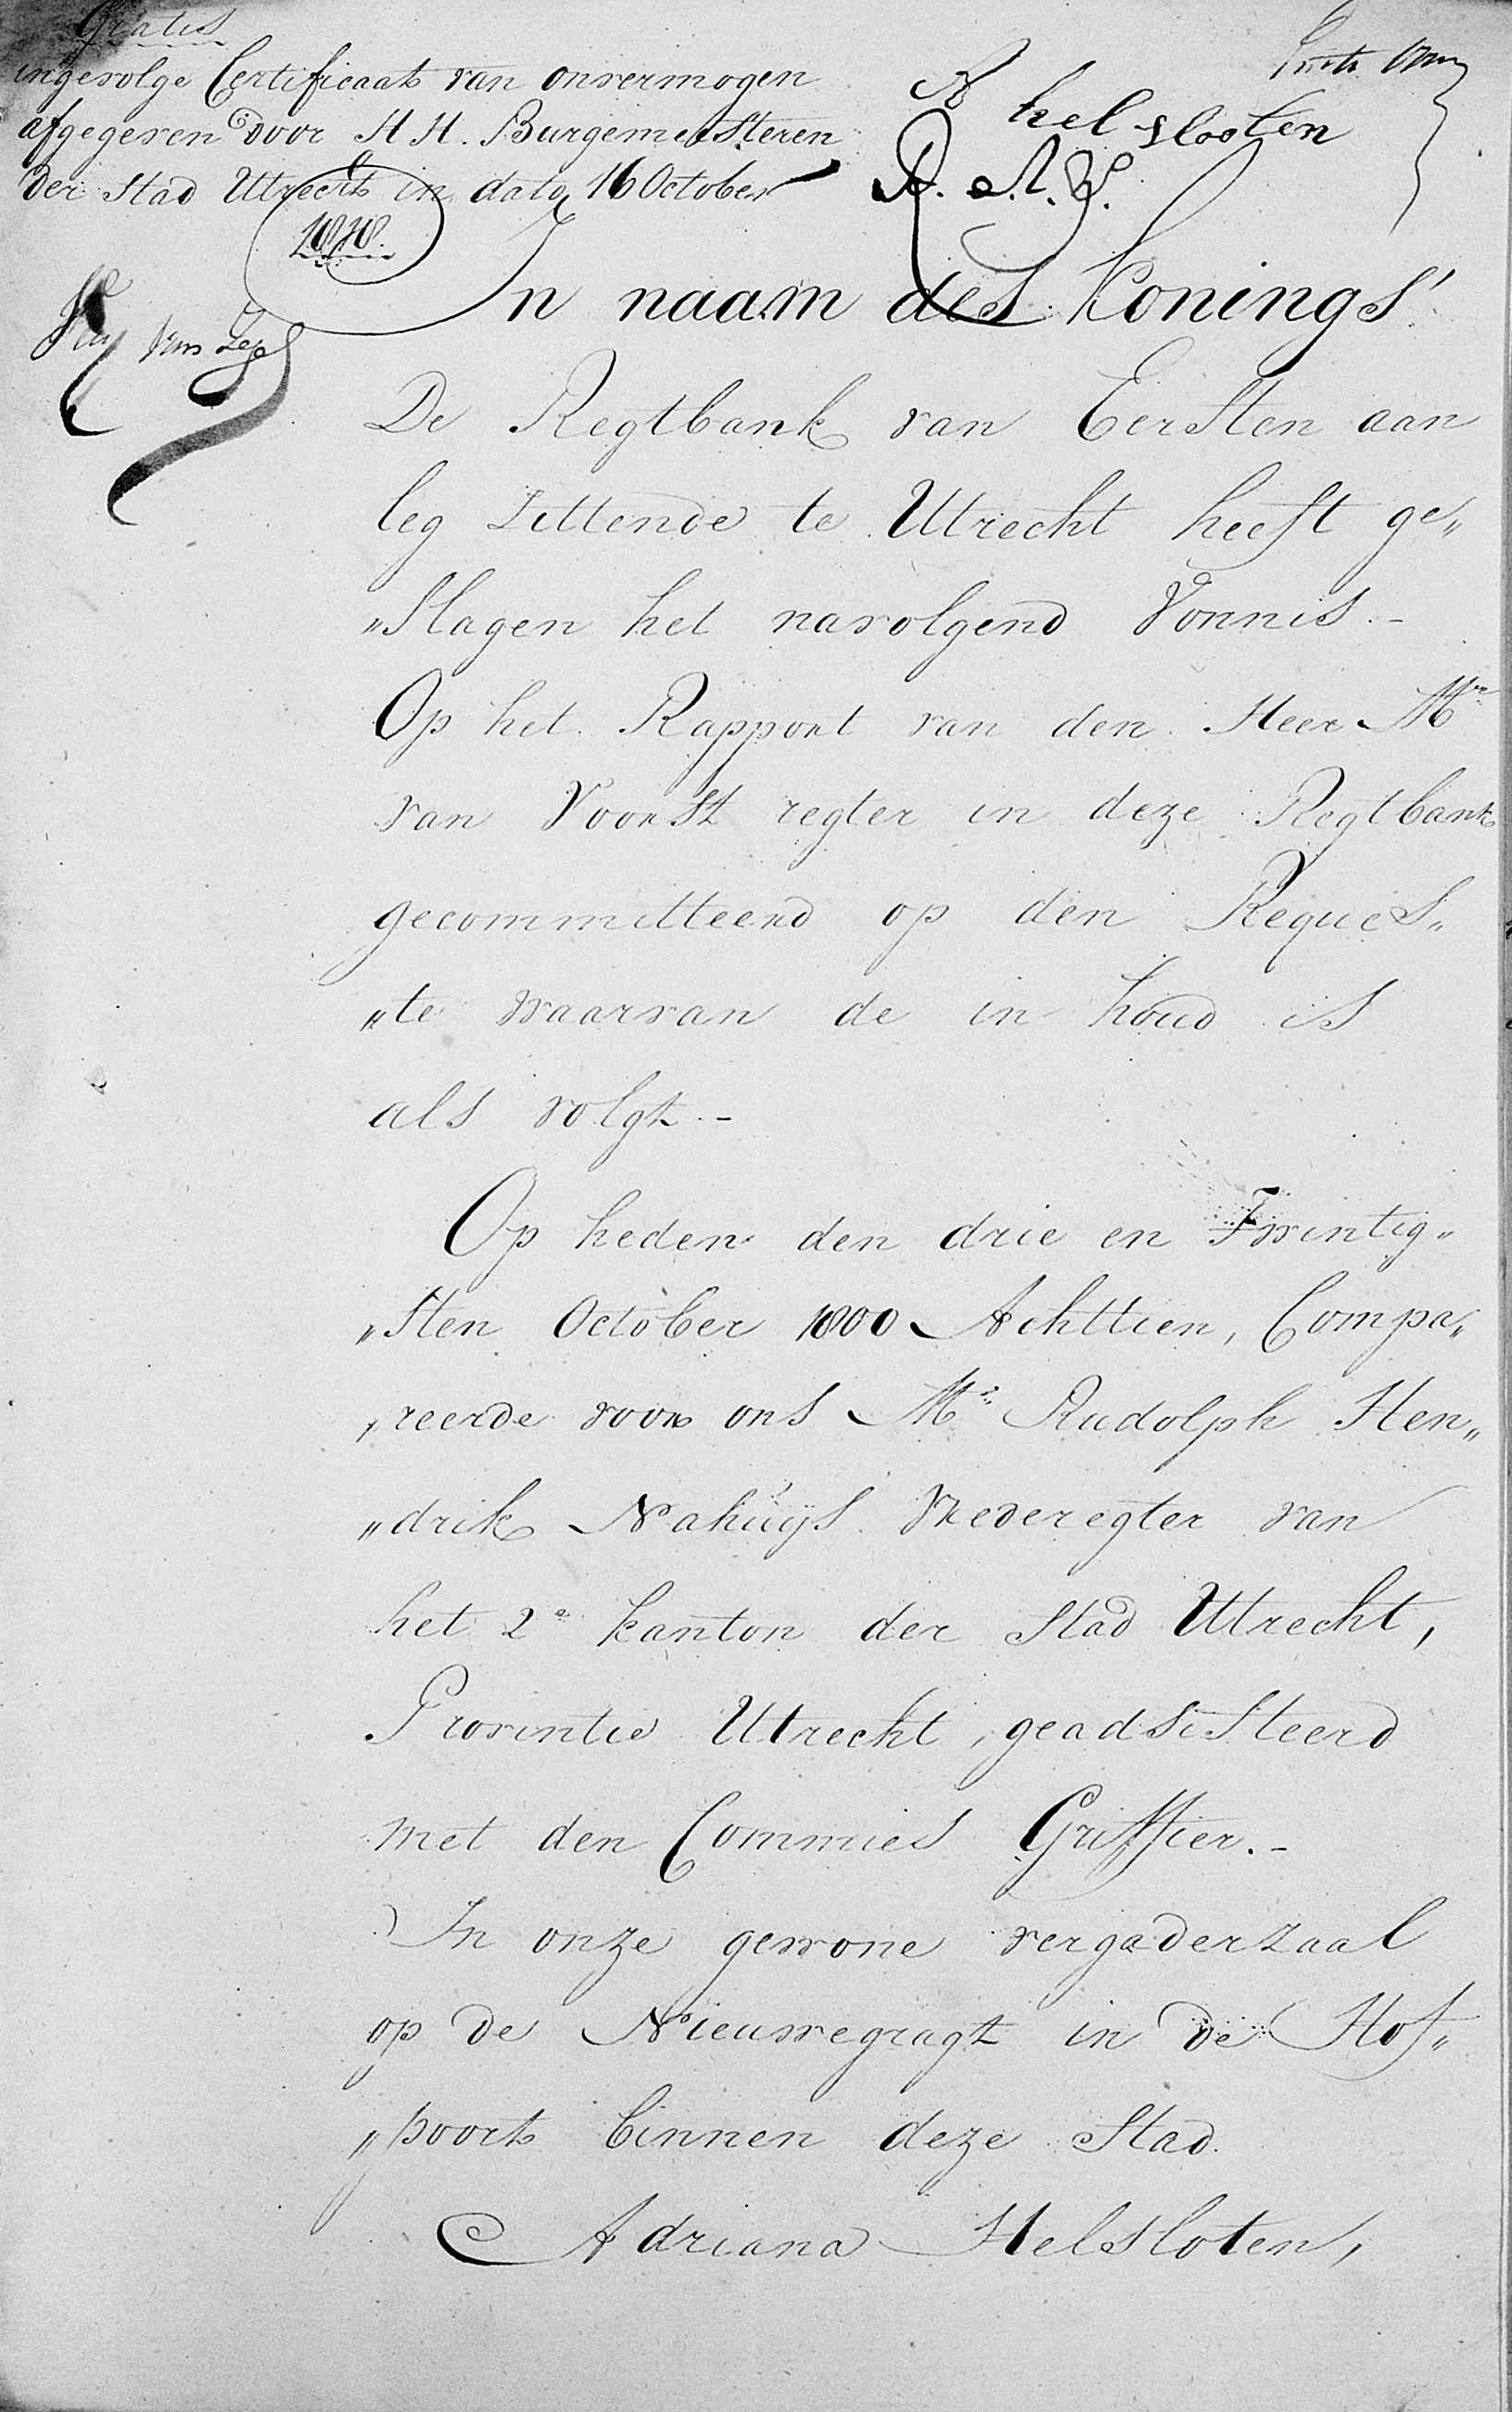 Gratis
ingevolge Certificaat van onvermogen
afgegeven door HH. Burgemeesteren
der Stad Utrecht in dato 16 October
1818.
A hel slooten
R. N. W.
In naam des Konings!
De Regtbank van Eersten aan
leg Zittende te Utrecht heeft ge„
„slagen het navolgend Vonnis.-
Op het Rapport van den Heer Mr
van Voorst regter in deze Regtbank
gecommitteerd op den Reques„
„te waarvan de in houd is
als volgt.-
Op heden den drie en Twintig„
„sten October 1800 Achttien, Compa„
„reerde voor ons Mr. Rudolph Hen„
„drik Nahuijs Vrederegter van
het 2e kanton der Stad Utrecht,
Provintie Utrecht, geadsisteerd
met den Commies Griffier.-
In onze gewone vergaderzaal
op de Nieuwegragt in de Hof„
„poort binnen deze Stad.
Adriana Helsloten,